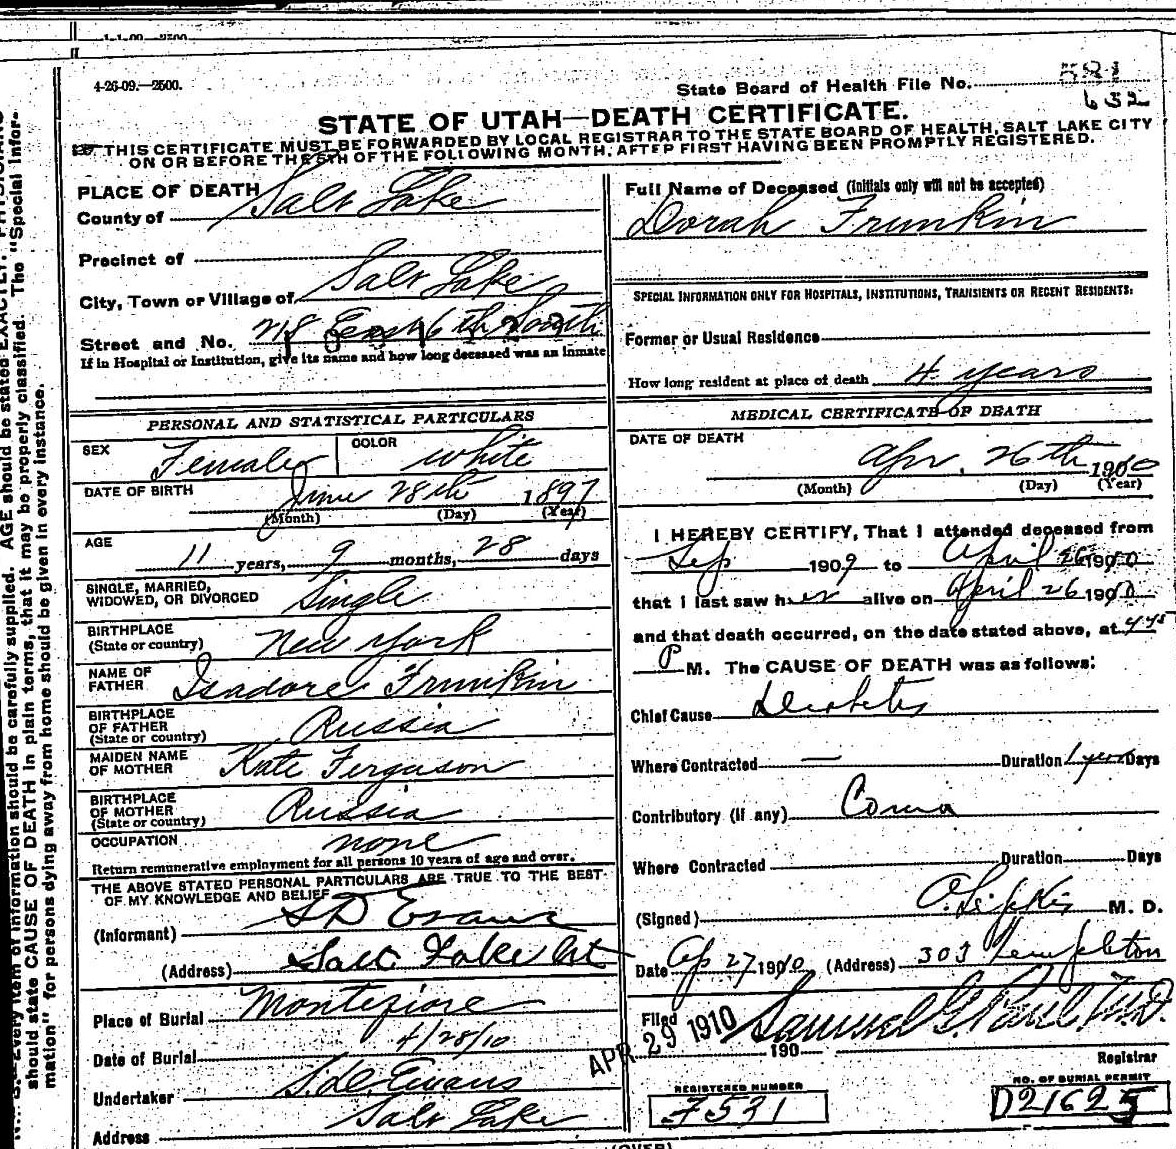 1-1-09—2500.
4-26-09.—2500.
State Board of Health File No.
581
652
STATE OF UTAH—DEATH CERTIFICATE.
THIS CERTIFICATE MUST BE FORWARDED BY LOCAL REGISTRAR TO THE STATE BOARD OF HEALTH, SALT LAKE CITY
ON OR BEFORE THE 5TH OF THE FOLLOWING MONTH, AFTER FIRST HAVING BEEN PROMPTLY REGISTERED.
PLACE OF DEATH
County of Salt Lake
Precinct of
City, Town or Village of Salt Lake
Street and No. 218 East 6th South
If in Hospital or Institution, give its name and how long deceased was an inmate
PERSONAL AND STATISTICAL PARTICULARS
SEX Female COLOR White
DATE OF BIRTH June 28th 1897
(Month) (Day) (Year)
AGE
11 years, 9 months, 28 days
SINGLE, MARRIED,
WIDOWED, OR DIVORCED Single
BIRTHPLACE
(State or country) New York
NAME OF
FATHER Isadore Frumkin
BIRTHPLACE
OF FATHER
(State or country) Russia
MAIDEN NAME
OF MOTHER Kate Ferguson
BIRTHPLACE
OF MOTHER
(State or country) Russia
OCCUPATION none
Return remunerative employment for all persons 10 years of age and over.
THE ABOVE STATED PERSONAL PARTICULARS ARE TRUE TO THE BEST
OF MY KNOWLEDGE AND BELIEF
(Informant) S D Evans
(Address) Salt Lake
Place of Burial Montefiore
Date of Burial 4/28/10
Undertaker Evans
Address Salt Lake
Full Name of Deceased (initials only will not be accepted)
Dorah Frumkin
SPECIAL INFORMATION ONLY FOR HOSPITALS, INSTITUTIONS, TRANSIENTS OR RECENT RESIDENTS:
Former or Usual Residence
How long resident at place of death 4 years
MEDICAL CERTIFICATE OF DEATH
DATE OF DEATH
Apr. 26th 1910
(Month) (Day) (Year)
I HEREBY CERTIFY, That I attended deceased from
Sep 1909 to April 26 1910
that I last saw her alive on April 26 1910
and that death occurred, on the date stated above, at 4 45
P M. The CAUSE OF DEATH was as follows:
Chief Cause Diabetes
Where Contracted — Duration 1 year Days
Contributory (if any) Coma
Where Contracted Duration Days
(Signed) M. D.
Date Ap 27 1910 (Address) 303 Templeton
Filed APR 29 1910 190 Samuel G. Paul M.D.
Registrar
REGISTERED NUMBER
7531
NO. OF BURIAL PERMIT
D21625
(OVER)
Every item of information should be carefully supplied. AGE should be stated EXACTLY. PHYSICIANS
should state CAUSE OF DEATH in plain terms, that it may be properly classified. The "Special Infor-
mation" for persons dying away from home should be given in every instance.